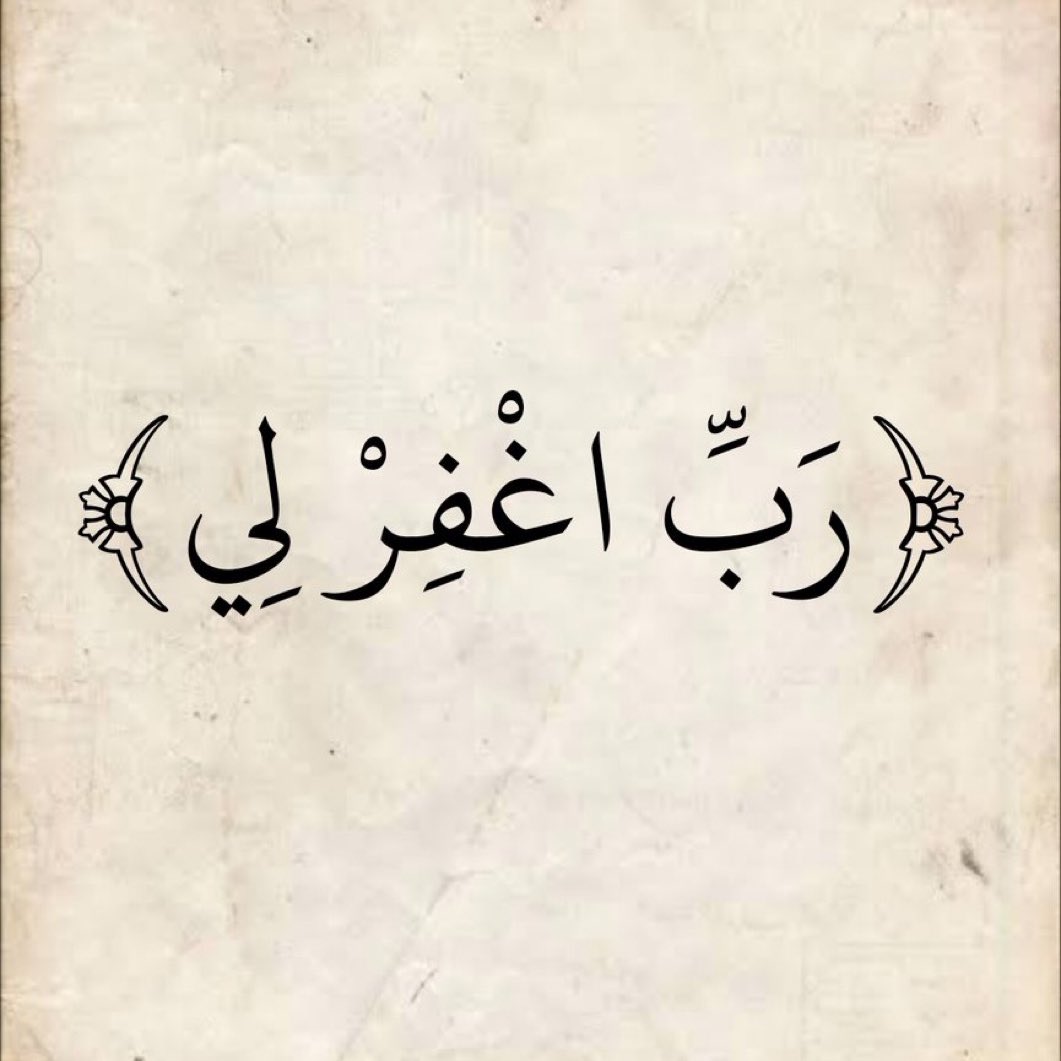 ﴿رَبِّ اغْفِرْ لِي﴾